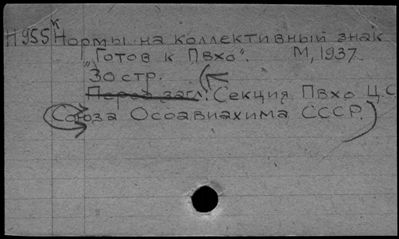 Н955 Нормы на коллективный знак
"Готов к Пвхо". М, 1937
30 стр.
Перед загл.: Секция Пвхо Ц С
Союза Осоавиахима СССР.